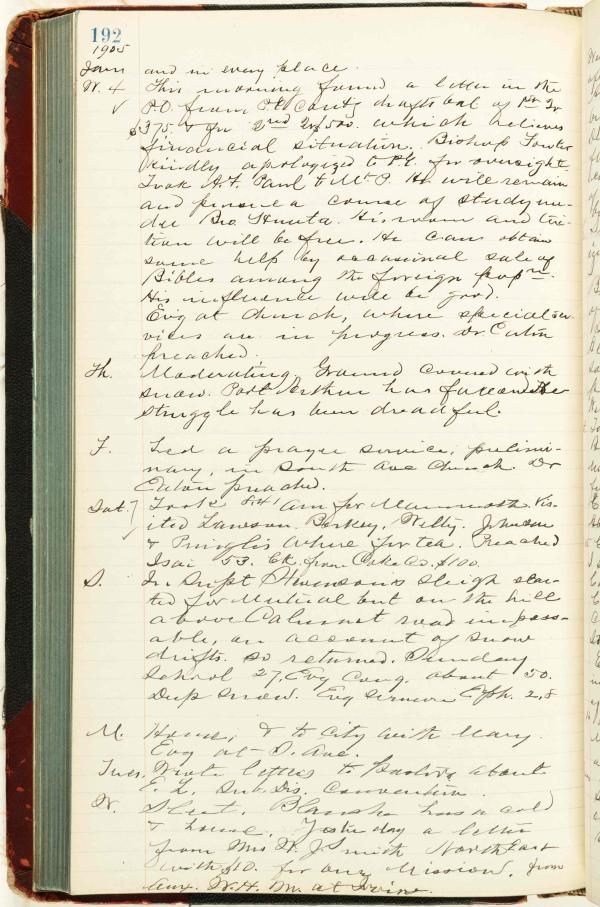 192
1905
Jan and in every place.
W. 4 This morning found a letter in the
✓ P.O. from drafts bal of 1st Qr
$375. & for 2nd Qr $500. which relieves
financial situation. Bishop Fowler
kindly apologized to P.E. for oversight.
Took A.F. Paul to Mt. P. He will remain
and pursue a course of study un-
der Bro. Huneta. His room and tui-
tion will be free. He can obtain
some help by occasional sale of
Bibles among the foreign popn.
His influence will be good.
Evg at church, where special ser-
vices are in progress. Dr. Eaton
preached.
Th. Moderating. Ground covered with
snow. Port Arthur has fallen. The
struggle has been dreadful.
F. Led a prayer service, prelimi-
nary, in South Ave Church. Dr
Eaton preached.
Sat. 7 Took 8.41 am for Mammoth. Vis-
✓ ited Lawson, Berkey, Welty, Johnson
& Pringles where for tea. Preached
Isai 53. Ck. from Coke Co. $100.
S. In Supt Stevenson's sleigh star-
ted for Mutual but on the hill
above Calumet road impass-
able, on account of snow
drifts. so returned. Sunday
School 27, Evg Cong. about 50.
Deep snow. Evg sermon Eph. 2,8
M. House, & to City with Mary.
Evg at S. Ave.
Tues. Wrote letters to pastors about
E. L. Sub. Dis. Convention.
W. Sleet. Blanche has a cold
& house. Yesterday a letter
from Mrs W. J. Smith North East
with $10. for any Mission, from
Aux. W.H.M. at Irvine.